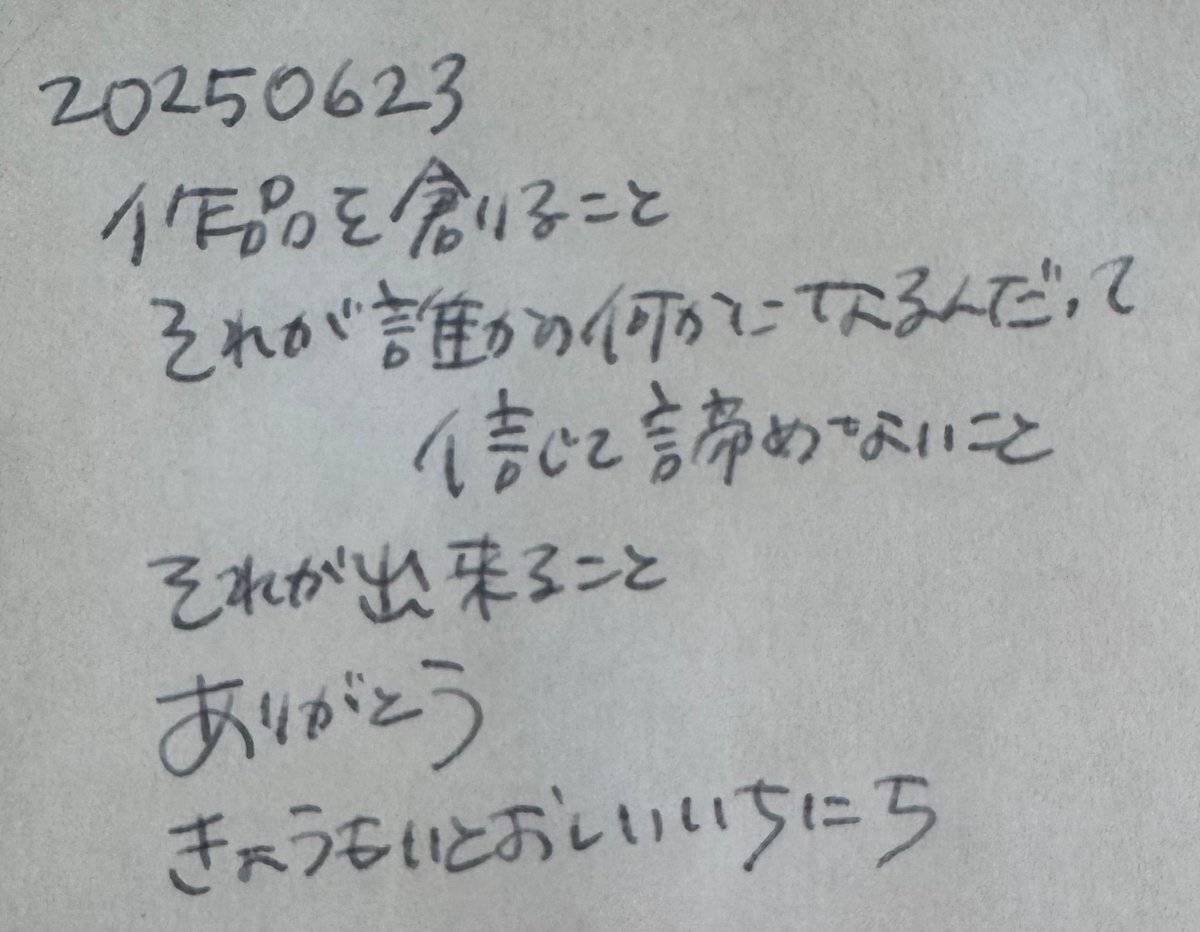 20250623
作品を創ること
それが誰かの何かになるんだって
信じて諦めないこと
それが出来ること
ありがとう
きょうもいとおしいいちにち